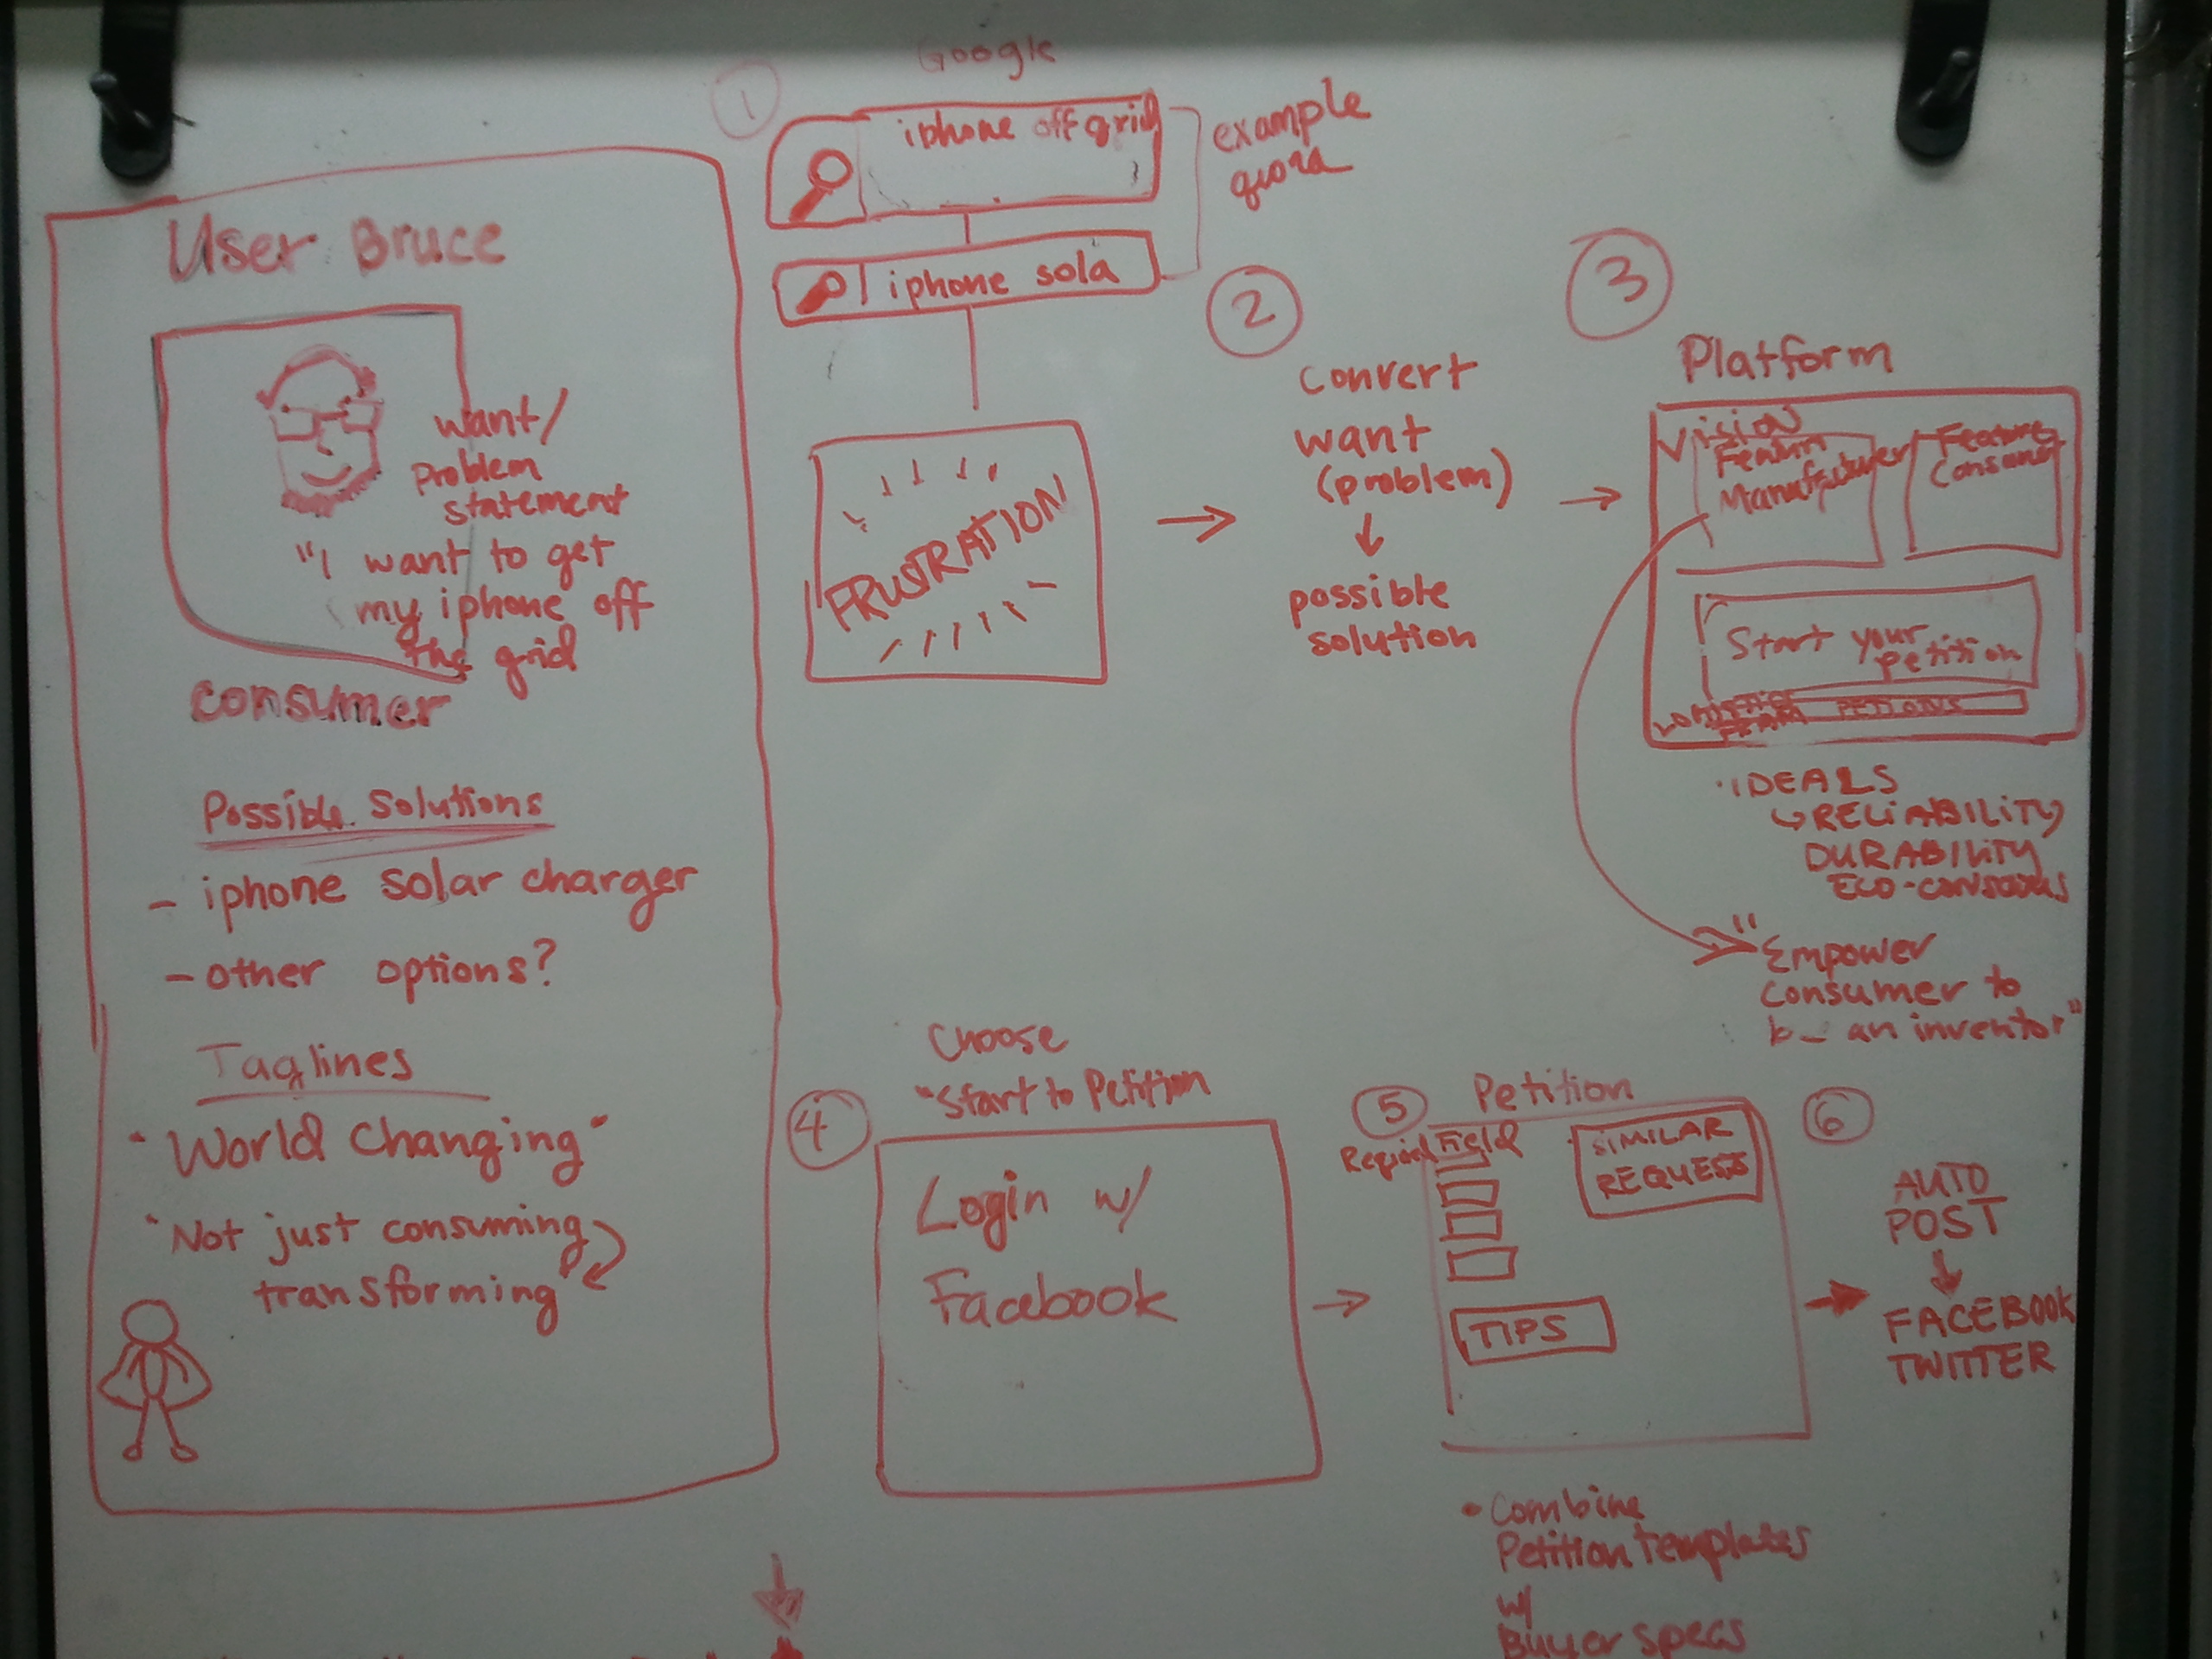 User Bruce
want/
problem
statement
"I want to get
my iphone off
the grid
consumer
Possible Solutions
- iphone solar charger
- other options?
Taglines
"World Changing"
"Not just consuming
transforming"
1
Google
iphone off grid
iphone sola
example
qiora
FRUSTRATION
2
convert
want
(problem)
possible
solution
3
Platform
Vision
Manufacturer
Feature
Consumer
Start your
petition
PETIONS
• IDEALS
RELIABILITY
DURABILITY
"Empower
consumer to
b_ an inventor"
4
Choose
"Start to Petition
Login w/
Facebook
5
Petition
Field
SIMILAR
REQUESTS
TIPS
• Combine
Petition templates
w/
Buyer specs
6
AUTO
POST
FACEBOOK
TWITTER